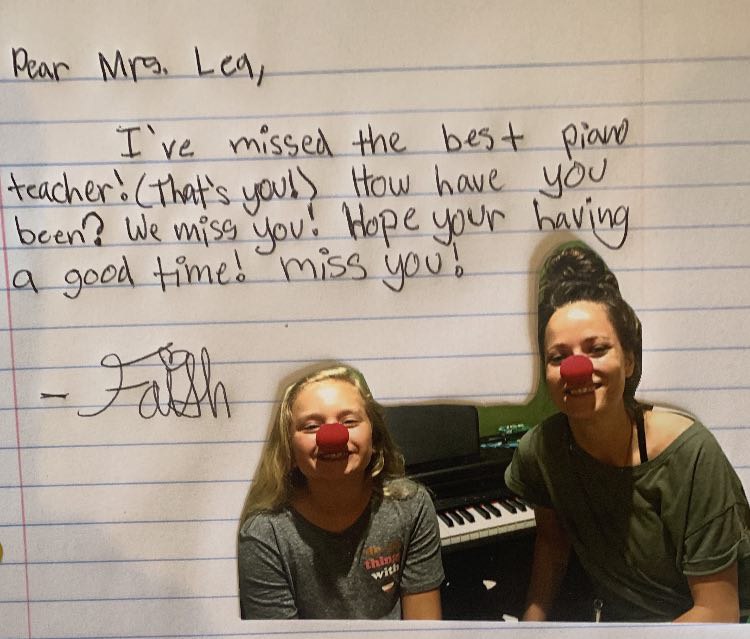 Dear Mrs. Lea,
I've missed the best piano
teacher! (That's you!) How have you
been? We miss you! Hope your having
a good time! miss you!
- Faith
thing
with